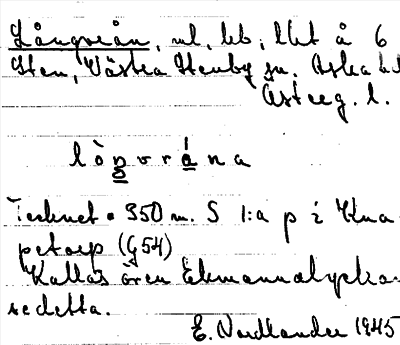 Långvrån, ul, bb, lht å 6
Sten, Västra Stenby sn. Aska hd
Österg. l.
lòŋvrána
Tecknet • 350 m. S 1:a p i Kna
petorp (G54)
Kallas även Ekmannalycka.
se detta.
E. Nordlander 1945